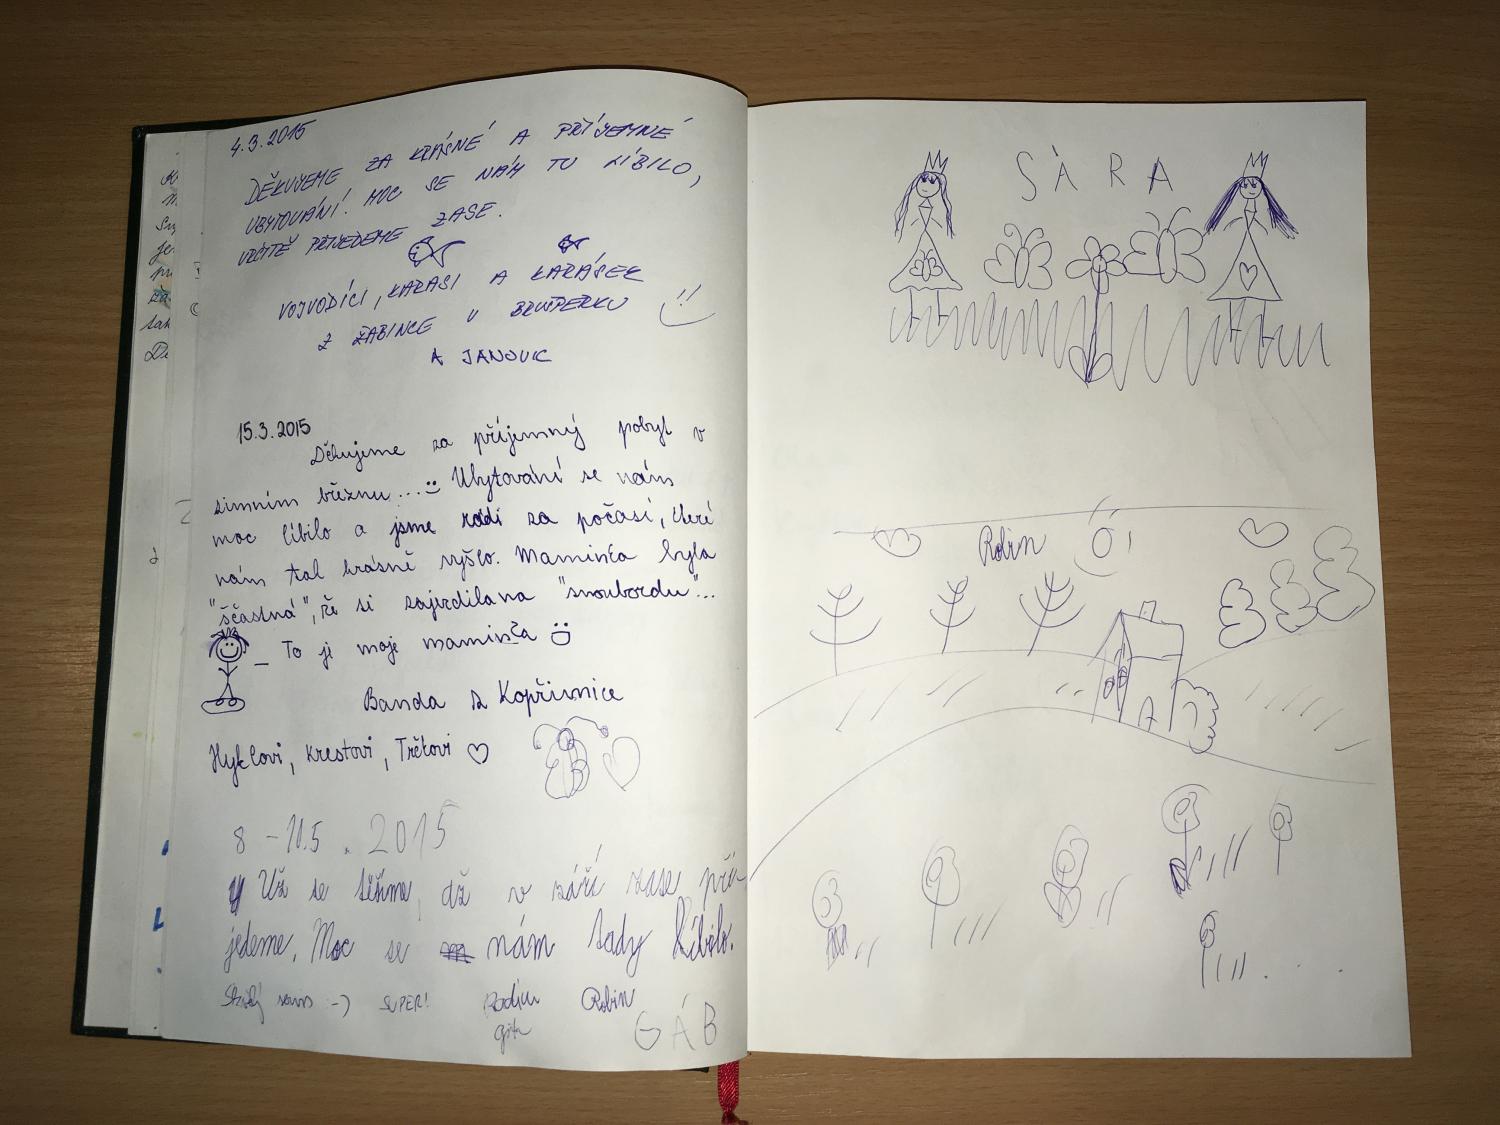 4.3.2015
DĚKUJEME ZA KRÁSNÉ A PŘÍJEMNÉ
UBYTOVÁNÍ. MOC SE NÁM TU LÍBILO,
URČITĚ PŘIJEDEME ZASE.
VOJVODÍCI, KARASI A KARÁSEK
Z ŽABINCE U BRUŠPERKU
A JANOVIC
15.3.2015
Děkujeme za příjemný pobyt v
zimním březnu...
Ubytování se nám
moc líbilo a jsme rádi za počasí, které
nám tak krásně vyšlo. Maminka byla
"ščastná", že si zajezdila na "snoubordu"...
To je moje maminka
Banda z Kopřivnice
Hyklovi, Krestovi, Třetovi
8 - 11.5. 2015
Už se těšíme, až v září zase při-
jedeme. Moc se nám tady líbilo.
:-) SUPER! Robin
GÁB
SÁRA
Robin